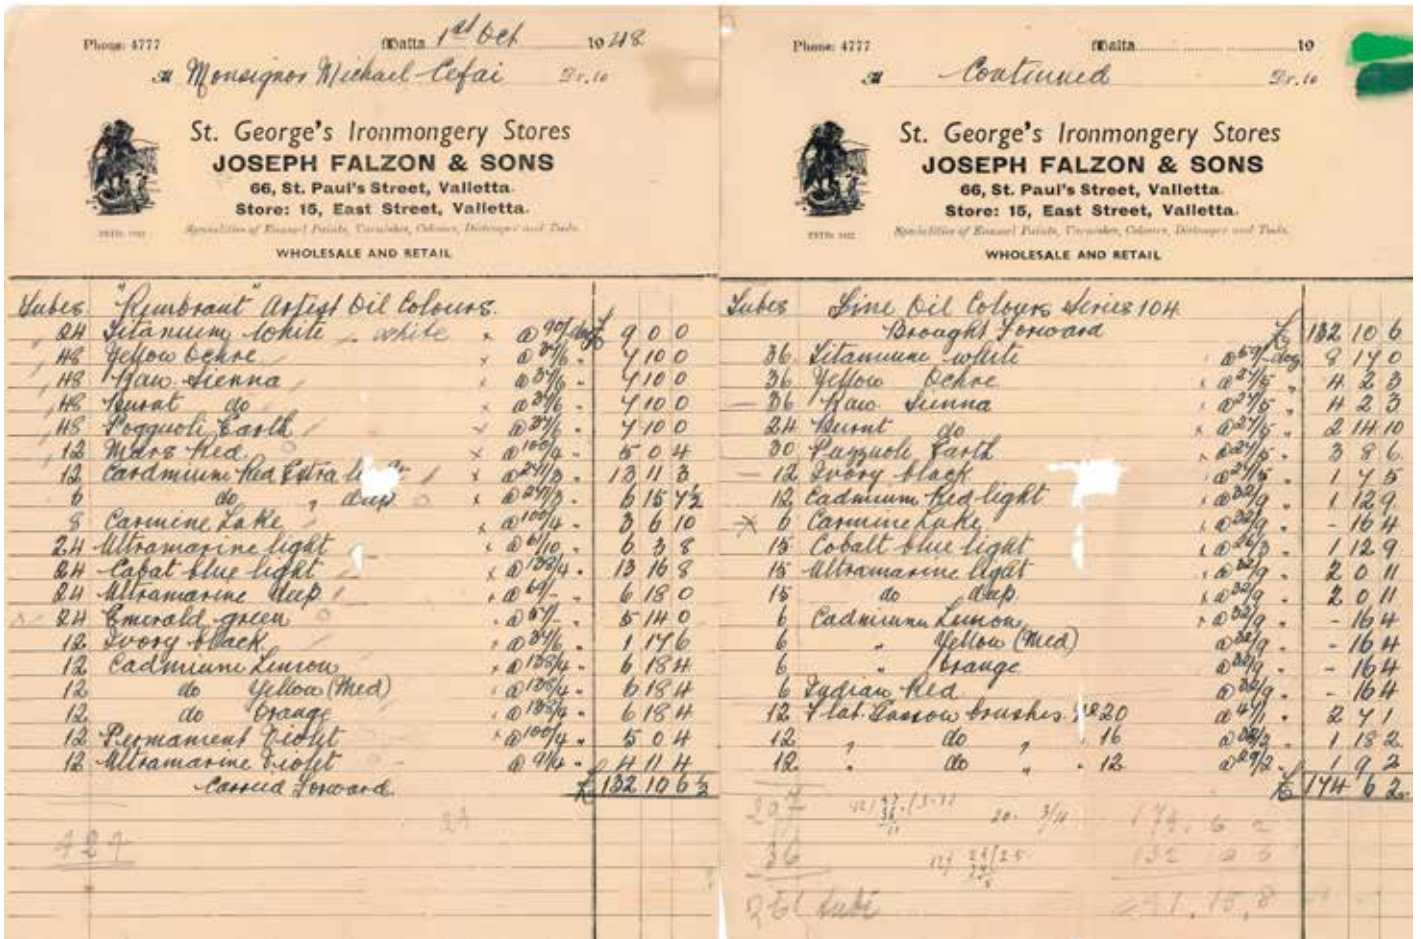 Phone: 4777 Malta 1st Oct 1948
M Monsignor Michael Cefai Dr. to
St. George's Ironmongery Stores
JOSEPH FALZON & SONS
66, St. Paul's Street, Valletta.
Store: 15, East Street, Valletta.
Specialities of Enamel Paints, Varnishes, Colours, Distemper and Tools.
WHOLESALE AND RETAIL
Tubes "Rembrant" Artist Oil Colours.
24 Titanium White white x @ 90/- doz £ 9 0 0
48 Yellow Ochre x @ 37/6 " 7 10 0
48 Raw Sienna x @ 37/6 " 7 10 0
48 Burnt do x @ 37/6 " 7 10 0
48 Pozzuoli Earth x @ 37/6 " 7 10 0
12 Mars Red x @ 100/4 " 5 0 4
12 Cardmium Red Extra x @ 271/3 " 13 11 3
6 do " deep x @ 271/3 " 6 15 7½
8 Carmine Lake x @ 100/4 " 3 6 10
24 Ultramarine light x @ 61/10 " 6 3 8
24 Cobat blue light x @ 138/4 " 13 16 8
24 Ultramarine deep x @ 69/- " 6 18 0
24 Emerald green x @ 57/- " 5 14 0
12 Ivory black x @ 37/6 " 1 17 6
12 Cadmium Lemon x @ 138/4 " 6 18 4
12 do Yellow (Med) x @ 138/4 " 6 18 4
12 do Orange x @ 138/4 " 6 18 4
12 Permanent Violet x @ 100/4 " 5 0 4
12 Ultramarine Violet x @ 91/4 " 4 11 4
Carried Forward £ 132 10 6½
424 24
Phone: 4777 Malta 19
M Continued Dr. to
St. George's Ironmongery Stores
JOSEPH FALZON & SONS
66, St. Paul's Street, Valletta.
Store: 15, East Street, Valletta.
Specialities of Enamel Paints, Varnishes, Colours, Distemper and Tools.
WHOLESALE AND RETAIL
Tubes Fine Oil Colours Series 104
Brought Forward £ 132 10 6
36 Titanium white @ 59/- doz 8 17 0
36 Yellow Ochre x @ 27/5 " 4 2 3
36 Raw Sienna x @ 27/5 " 4 2 3
24 Burnt do x @ 27/5 " 2 14 10
30 Puzzuoli Earth x @ 27/5 " 3 8 6
12 Ivory black x @ 27/5 " 1 7 5
12 Cadmium Red light x @ 32/9 " 1 12 9
x 6 Carmine Lake x @ 32/9 " - 16 4
15 Cobalt blue light x @ 26/3 " 1 12 9
15 Ultramarine light x @ 32/9 " 2 0 11
15 do deep x @ 32/9 " 2 0 11
6 Cadmium Lemon x @ 32/9 " - 16 4
6 " Yellow (Med) @ 32/9 " - 16 4
6 " Orange @ 32/9 " - 16 4
6 Indian Red @ 32/9 " - 16 4
12 Flat brushes No 20 @ 47/1 " 2 7 1
12 " do " " 16 @ 38/2 " 1 18 2
12 " do " " 12 @ 29/2 " 1 9 2
£ 174 6 2
20. 3/11 174. 6 2
36 132 10 6
41. 15. 8